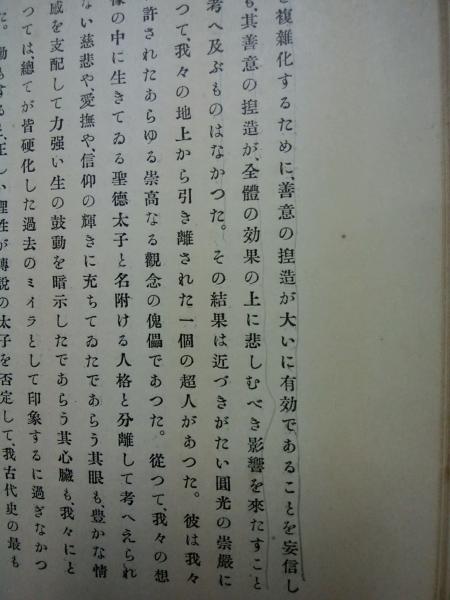 複雜化するために、善意の揑造が大いに有効であることを妄信し
も、其善意の揑造が、全體の効果の上に悲しむべき影響を來たすこと
考へ及ぶものはなかつた。その結果は近づきがたい圓光の崇嚴に
つて、我々の地上から引き離された一個の超人があつた。彼は我々
許されたあらゆる崇高なる觀念の傀儡であつた。從つて、我々の想
像の中に生きてゐる聖德太子と名附ける人格と分離して考へえられ
ない慈悲や、愛撫や、信仰の輝きに充ちてゐたであらう其眼も、豊かな情
感を支配して力强い生の鼓動を暗示したであらう其心臓も、我々にと
つては、總てが皆硬化した過去のミイラとして印象するに過ぎなかつ
た。動もすると、正しい理性が傳說の太子を否定して、我古代史の最も